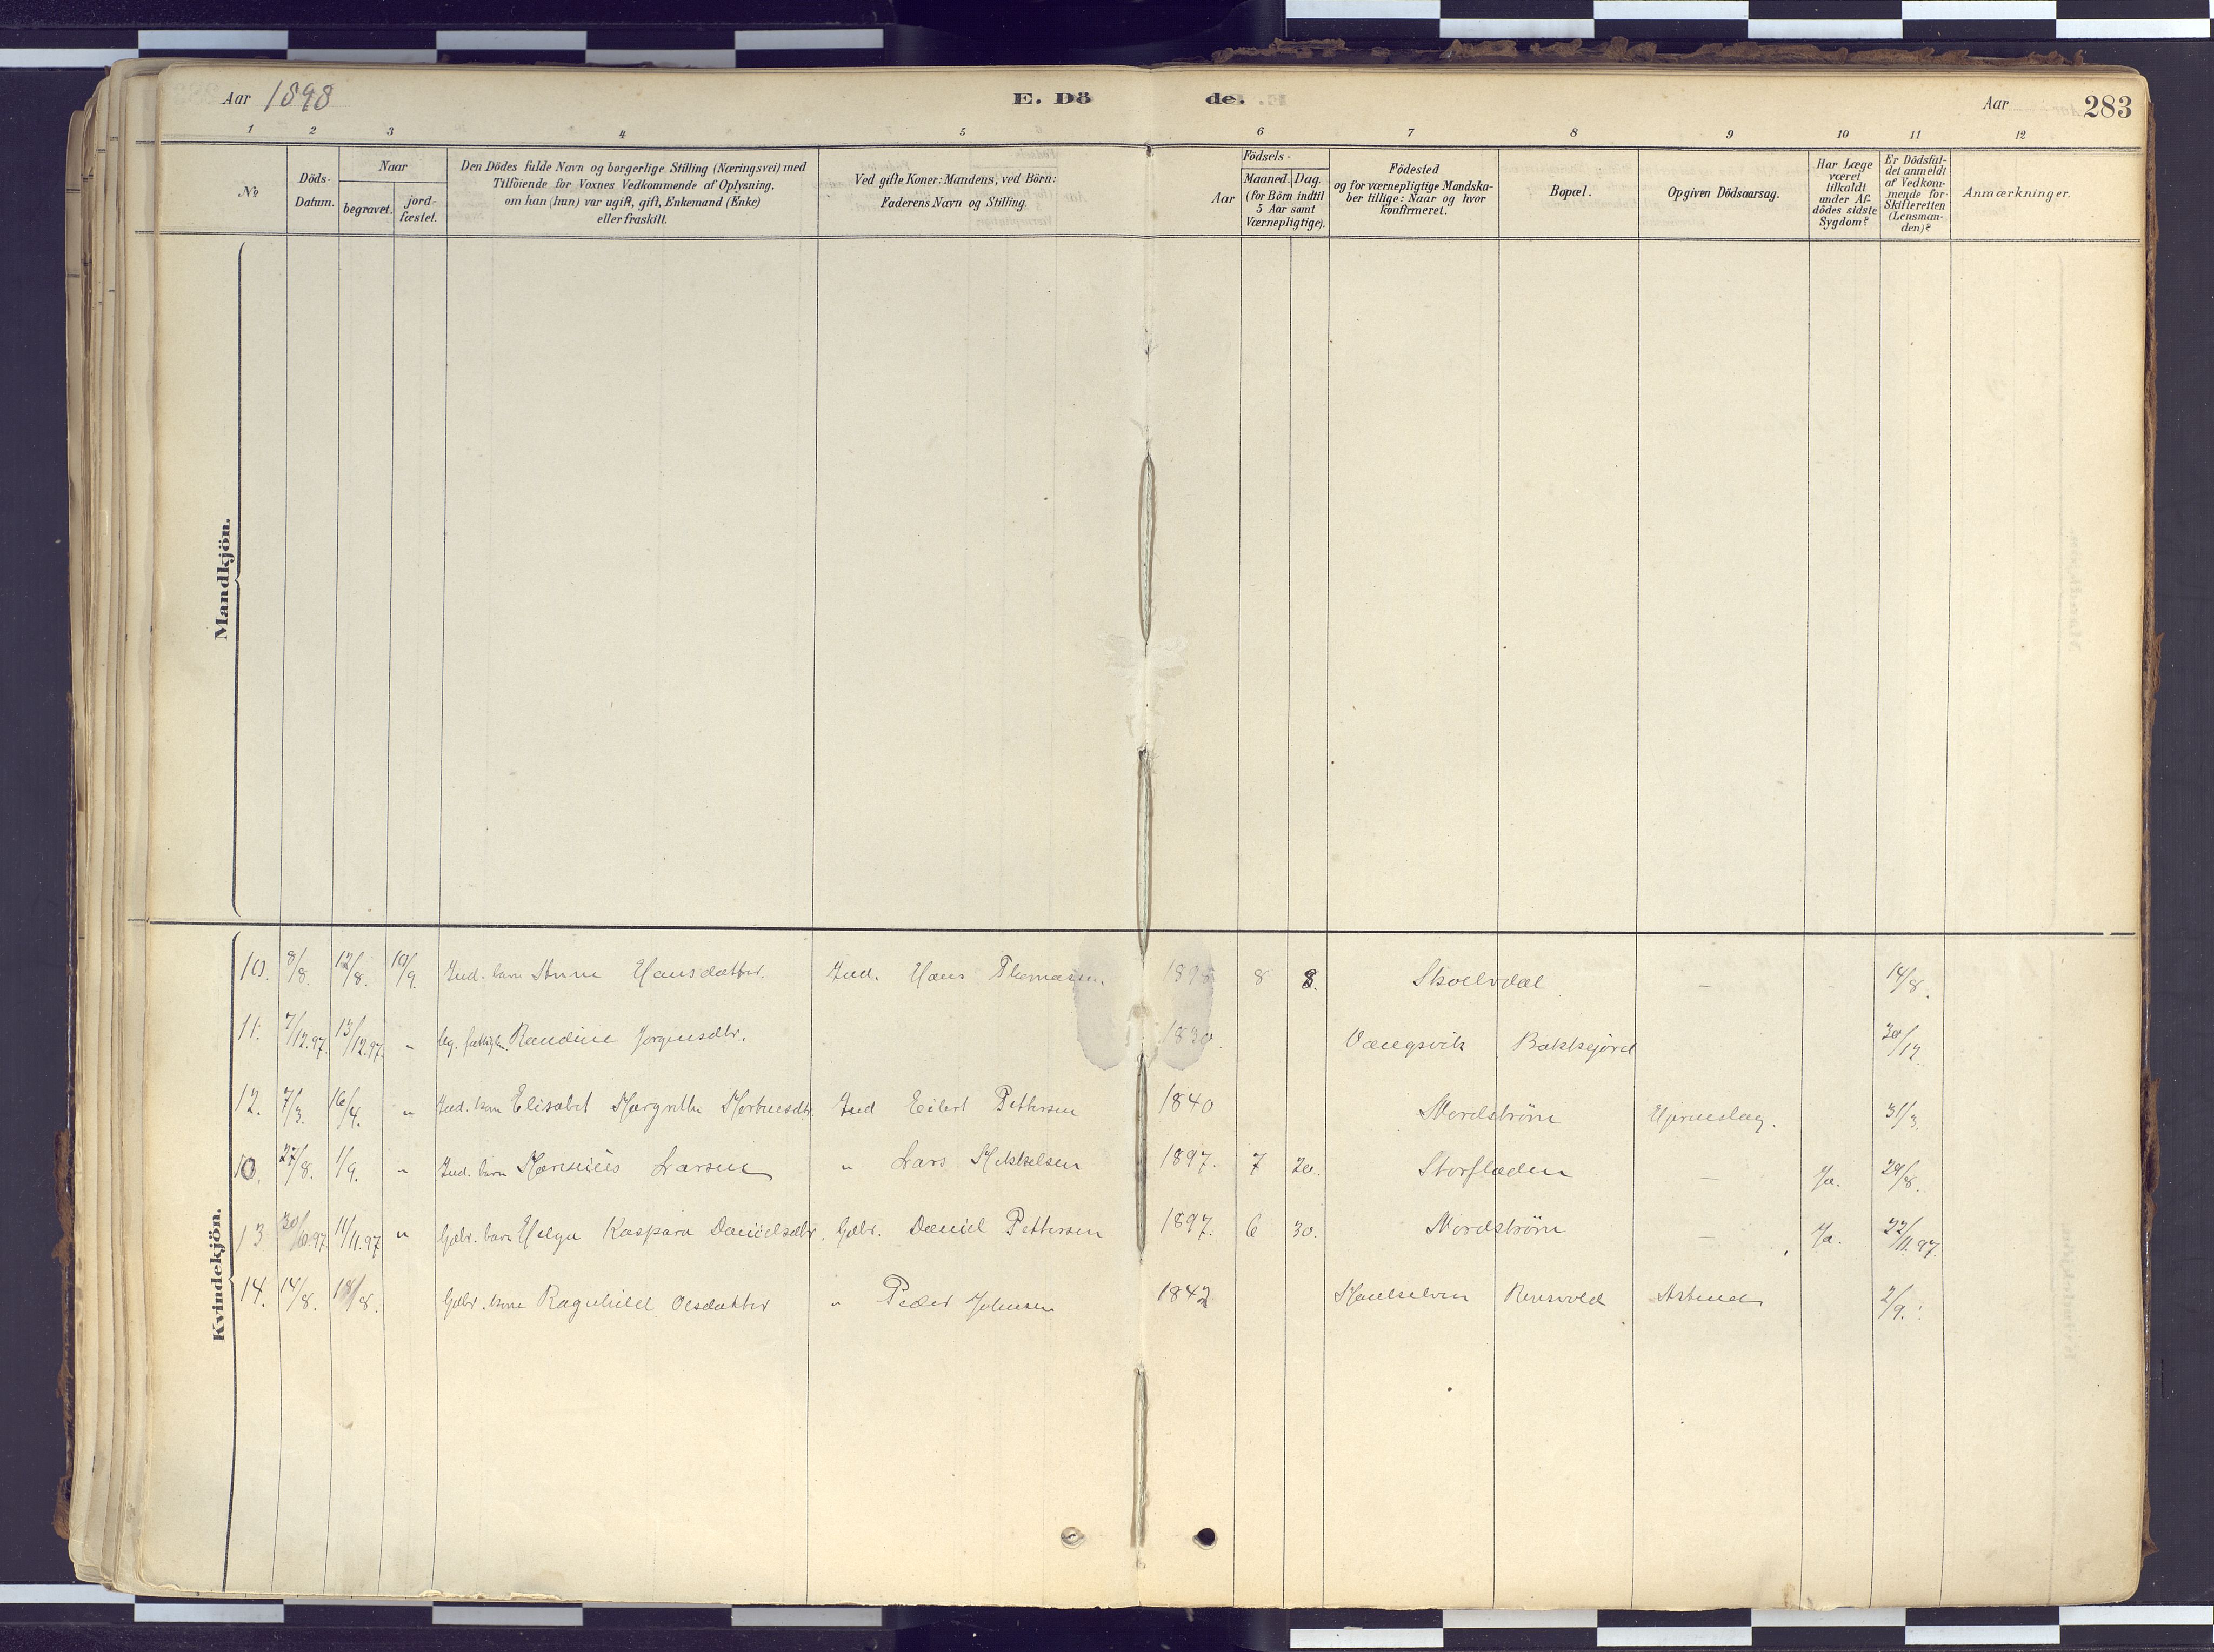 Aar 1898 E. Dö de. Aar 283
1 2 3 4 5 6 7 8 9 10 11 12
No
Döds-
Datum.
Naar
begravet.
jord-
fæstet.
Den Dödes fulde Navn og borgerlige Stilling (Næringsvei) med
Tilföiende for Voxnes Vedkommende af Oplysning,
om han (hun) var ugift, gift, Enkemand (Enke)
eller fraskilt.
Ved gifte Koner: Mandens, ved Börn:
Faderens Navn og Stilling.
Födsels-
Aar
Maaned. Dag.
(for Börn indtil
5 Aar samt
Værnepligtige).
Födested
og for værnepligtige Mandska-
ber tillige: Naar og hvor
konfirmeret.
Bopæl.
Opgiven Dödsaarsag.
Har Læge
været
tilkaldt
under Af-
dödes sidste
Sygdom?
Er Dödsfal-
det anmeldt
af Vedkom-
mende for
Skifteretten
(Lensman-
den)?
Anmærkninger.
Mandkjön.
Kvindekjön.
10. 8/8. 12/8. 10/9. Ind. barn Anne Hansdatter. Ind. Hans Thomassen 1898 8 8. – – 14/8.
11. 7/12.97. 13/12.97. " Randine Jørgensdtr. 1830. Vangsvik Bakkejord 30/12.
12. 7/3. 16/4. " Ind. kone Elisabet Margrethe Ind Eilert Pettersen 1840 Nordstrøm 31/3.
10. 27/8. 1/9. " Ind. barn Larsen " Lars Mikkelsen 1897. 7 20. Storfladen – Ja. 29/8.
13 11/11.97 " Gbr. barn Helga Kaspara Danielsdtr. Gbr. Daniel Pettersen 1897. 6 30. Nordstrøm – Ja. 22/11.97.
14. 14/8. 18/8. Gbr. kone Ragnhild Olsdatter " Peder Johnsen 1842 Maalselven 2/9.